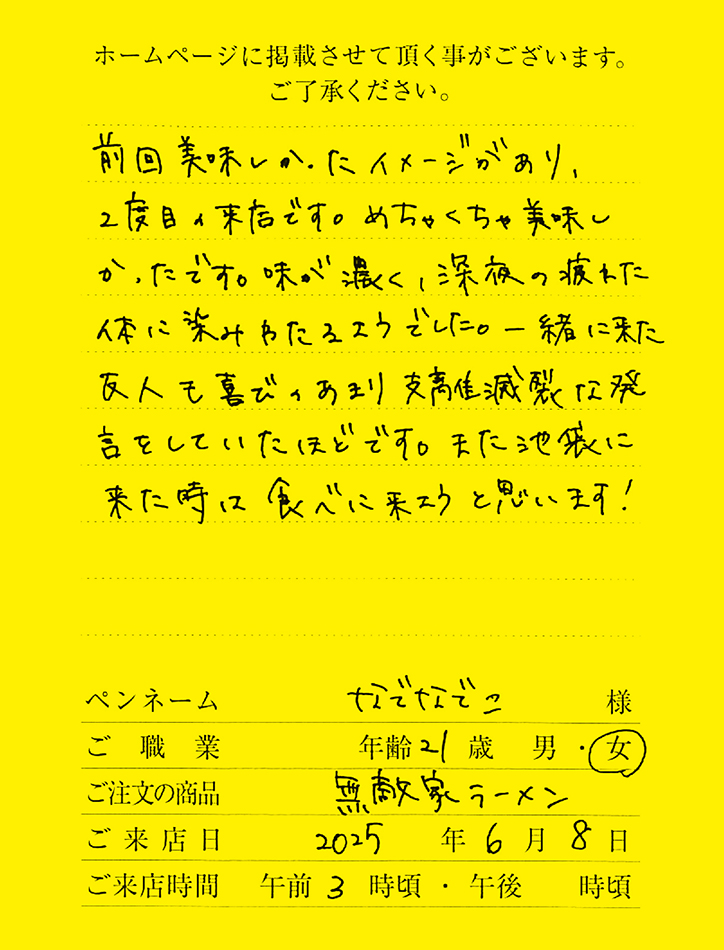 ホームページに掲載させて頂く事がございます。
ご了承ください。
前回美味しかったイメージがあり、
2度目の来店です。めちゃくちゃ美味し
かったです。味が濃く、深夜の疲れた
体に染みわたるようでした。一緒に来た
友人も喜びのあまり支離滅裂な発
言をしていたほどです。また池袋に
来た時は食べに来ようと思います!
ペンネーム なでなでこ 様
ご職業 年齢21歳 男・女
ご注文の商品 無敵家ラーメン
ご来店日 2025年6月8日
ご来店時間 午前3時頃・午後 時頃